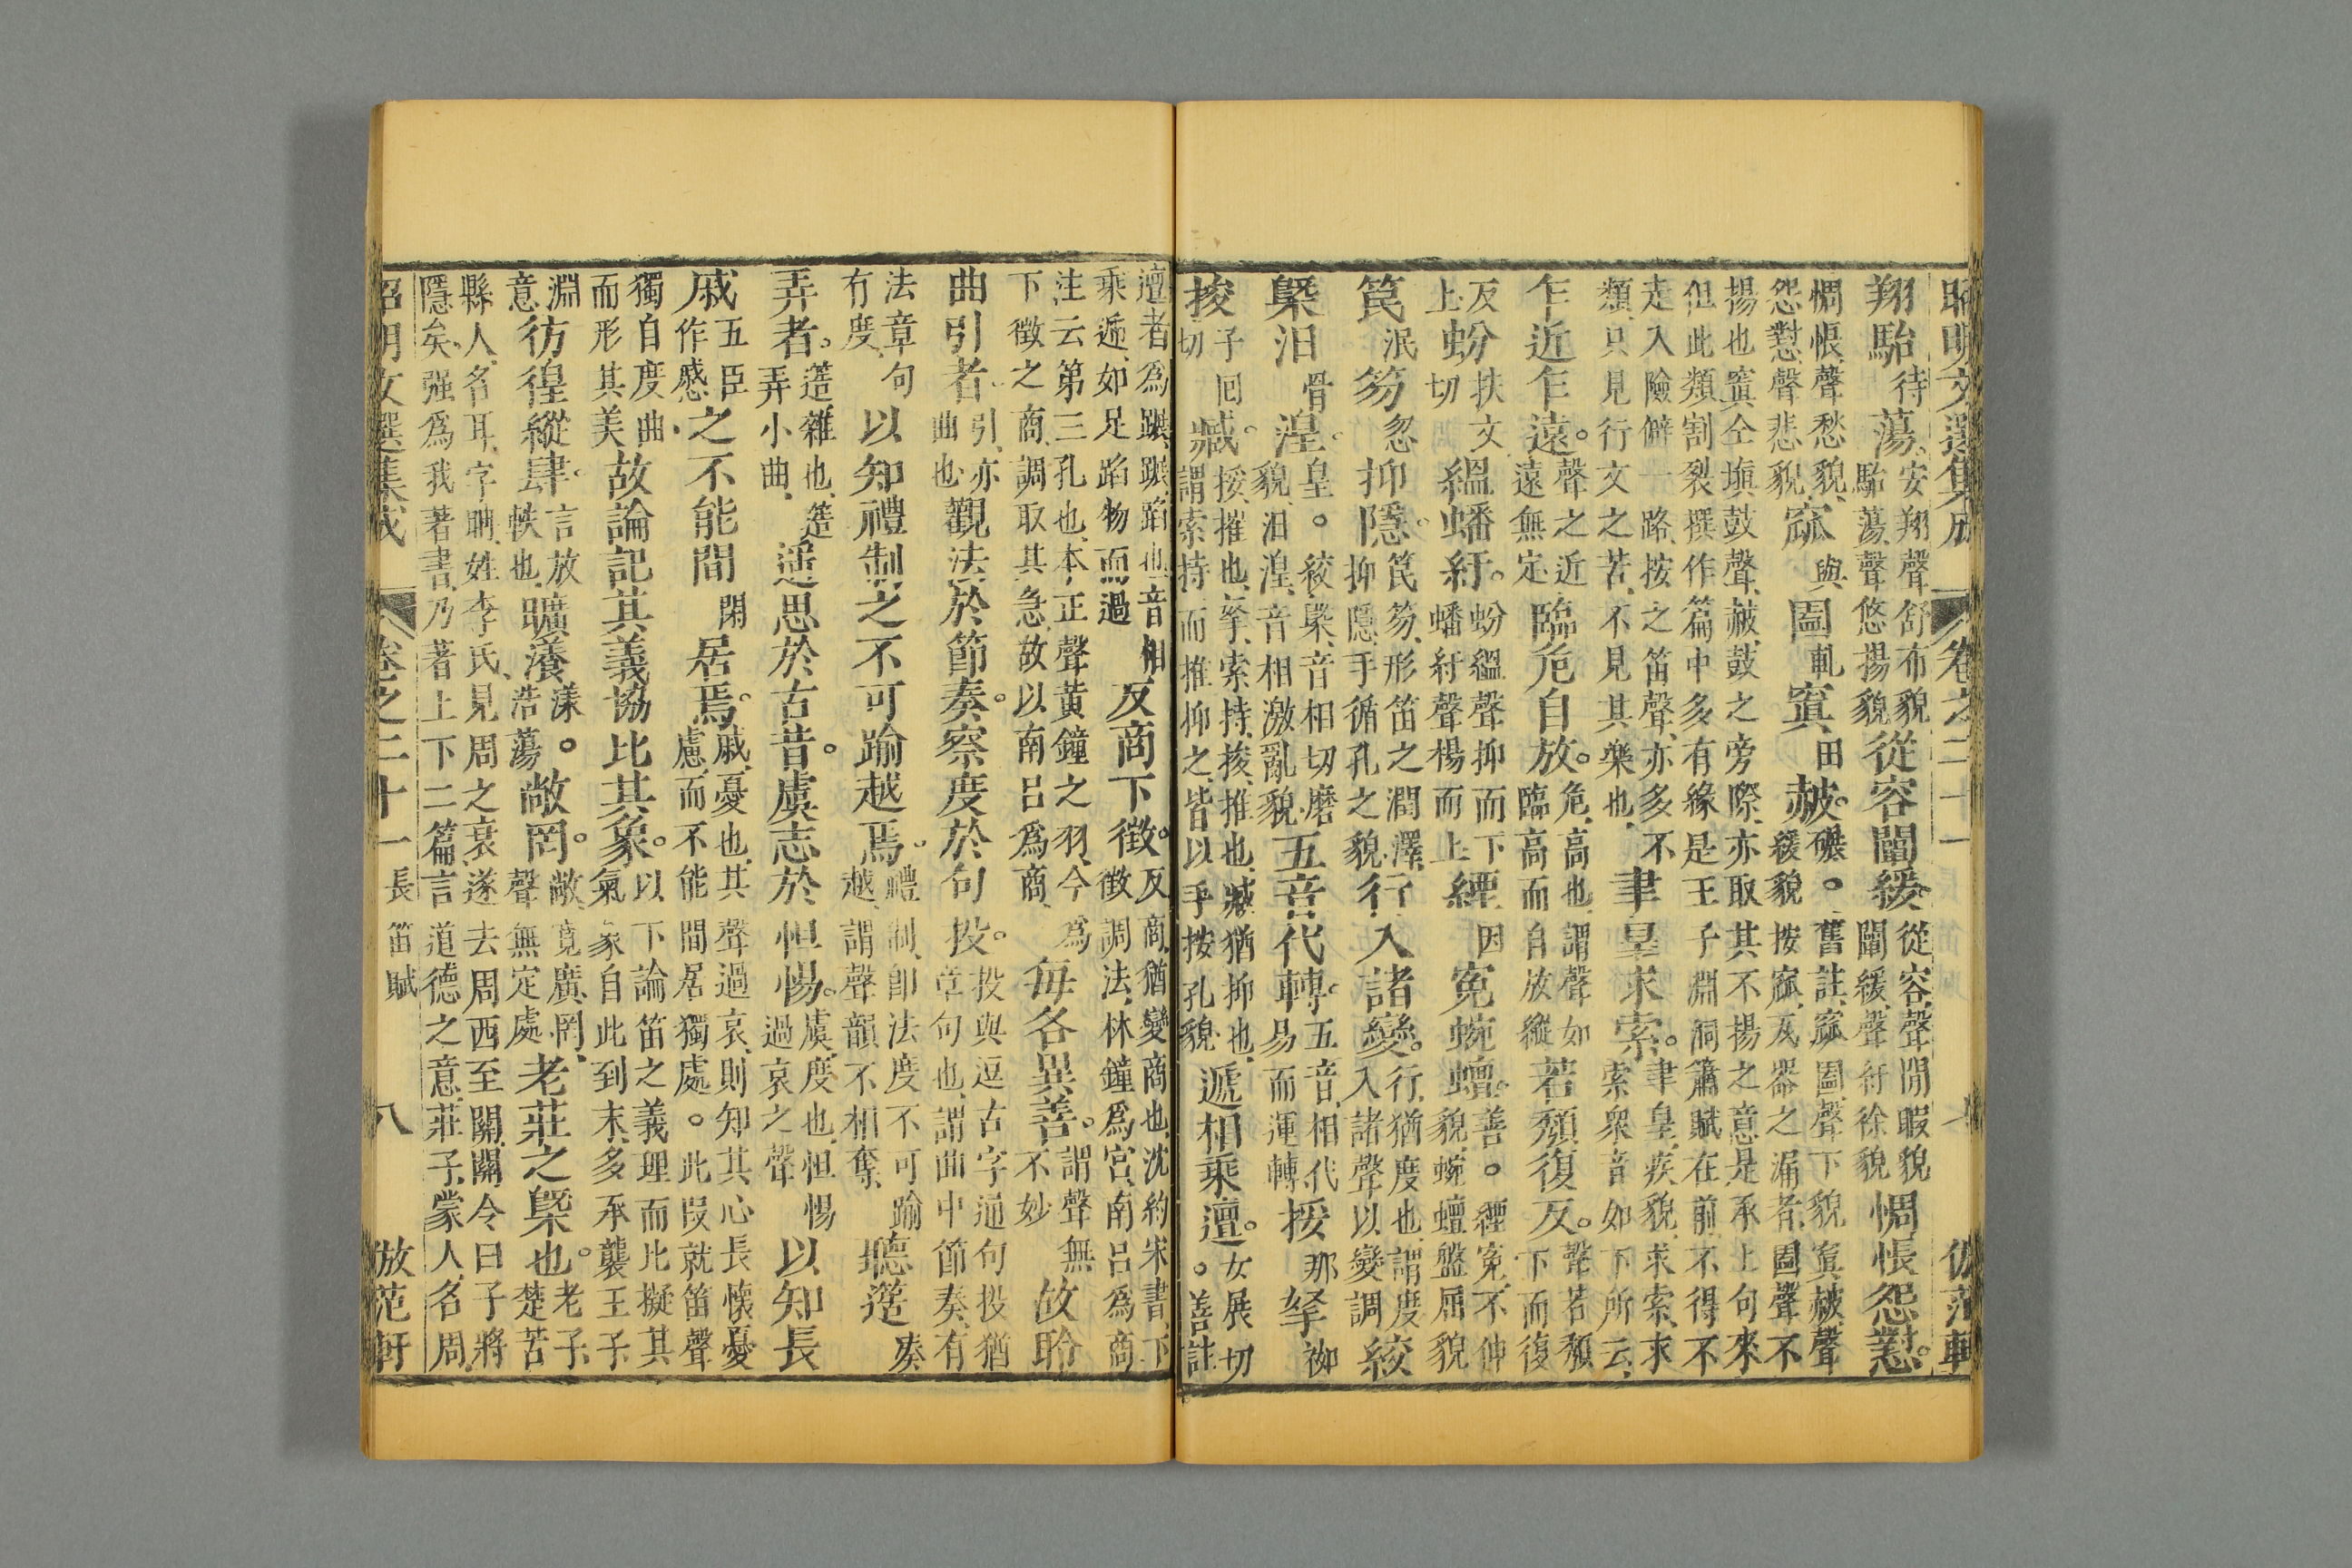 昭明文選集成 卷之二十一 倣范軒
翔駘待蕩安翔聲舒布貌駘蕩聲悠揚貌從容闡緩從容聲閒暇貌闡緩聲紆徐貌惆悵怨懟
惆悵聲愁貌怨懟聲悲貌窳與圔軋窴田赧碾緩貌舊註窳圔聲下貌窴赧聲按窳瓦器之漏者圔聲不
揚也窴仝塡鼓聲赧鼓之旁際亦取其不揚之意是承上句來但此類割裂撰作篇中多有緣是王子淵洞簫賦在前不得不
走入險僻一路按之笛聲亦多不類只見行文之苦不見其樂也聿皇求索聿皇疾貌求索求索衆音如下所云
乍近乍遠聲之近遠無定臨危自放危高也謂聲如臨高而自放縱若頹復反聲若頹下而復
反上蚡扶文切縕蟠紆蚡縕聲抑而下蟠紆聲揚而上緸因寃蜿蟺善緸寃不伸貌蜿蟺盤屈貌
笢泯笏忽抑隱笢笏形笛之潤澤抑隱手循孔之貌行入諸變行猶度也謂度入諸聲以變調絞
槩汨骨湟皇絞槩音相切磨貌汨湟音相激亂貌五音代轉五音相代易而運轉挼那拏𧘂
捘子回切臧挼摧也拏索持捘推也臧猶抑也謂索持而推抑之皆以手按孔貌遞相乘邅女展切善註
邅者爲蹍蹍蹈也音相乘遞如足蹈物而過反商下徵反商猶變商也沈約宋書下徵調法林鐘爲宮南呂爲商
注云第三孔也本正聲黃鐘之羽今爲下徵之商調取其急故以南呂爲商每各異善謂聲無不妙故聆
曲引者引亦曲也觀法於節奏察度於句投投與逗古字通句投猶章句也謂曲中節奏有
法章句有度以知禮制之不可踰越焉禮制卽法度不可踰越謂聲韻不相奪聽簉湊
弄者簉雜也簉弄小曲遥思於古昔虞志於怛惕虞度也怛惕過哀之聲以知長
戚五臣作慼之不能間閑居焉戚憂也其聲過哀則知其心長懷憂慮而不能間居獨處此叚就笛聲
獨自度曲而形其美故論記其義協比其象以下論笛之義理而比擬其氣象自此到末多承襲王子
淵意彷徨縱肆言放軼也曠瀁漾浩蕩敞罔敞寛廣罔聲無定處老莊之槩也老子楚苦
縣人名耳字聃姓李氏見周之衰遂去周西至關關令曰子將隱矣强爲我著書乃著上下二篇言道德之意莊子蒙人名周
昭明文選集成 卷之二十一 長笛賦 八 倣范軒